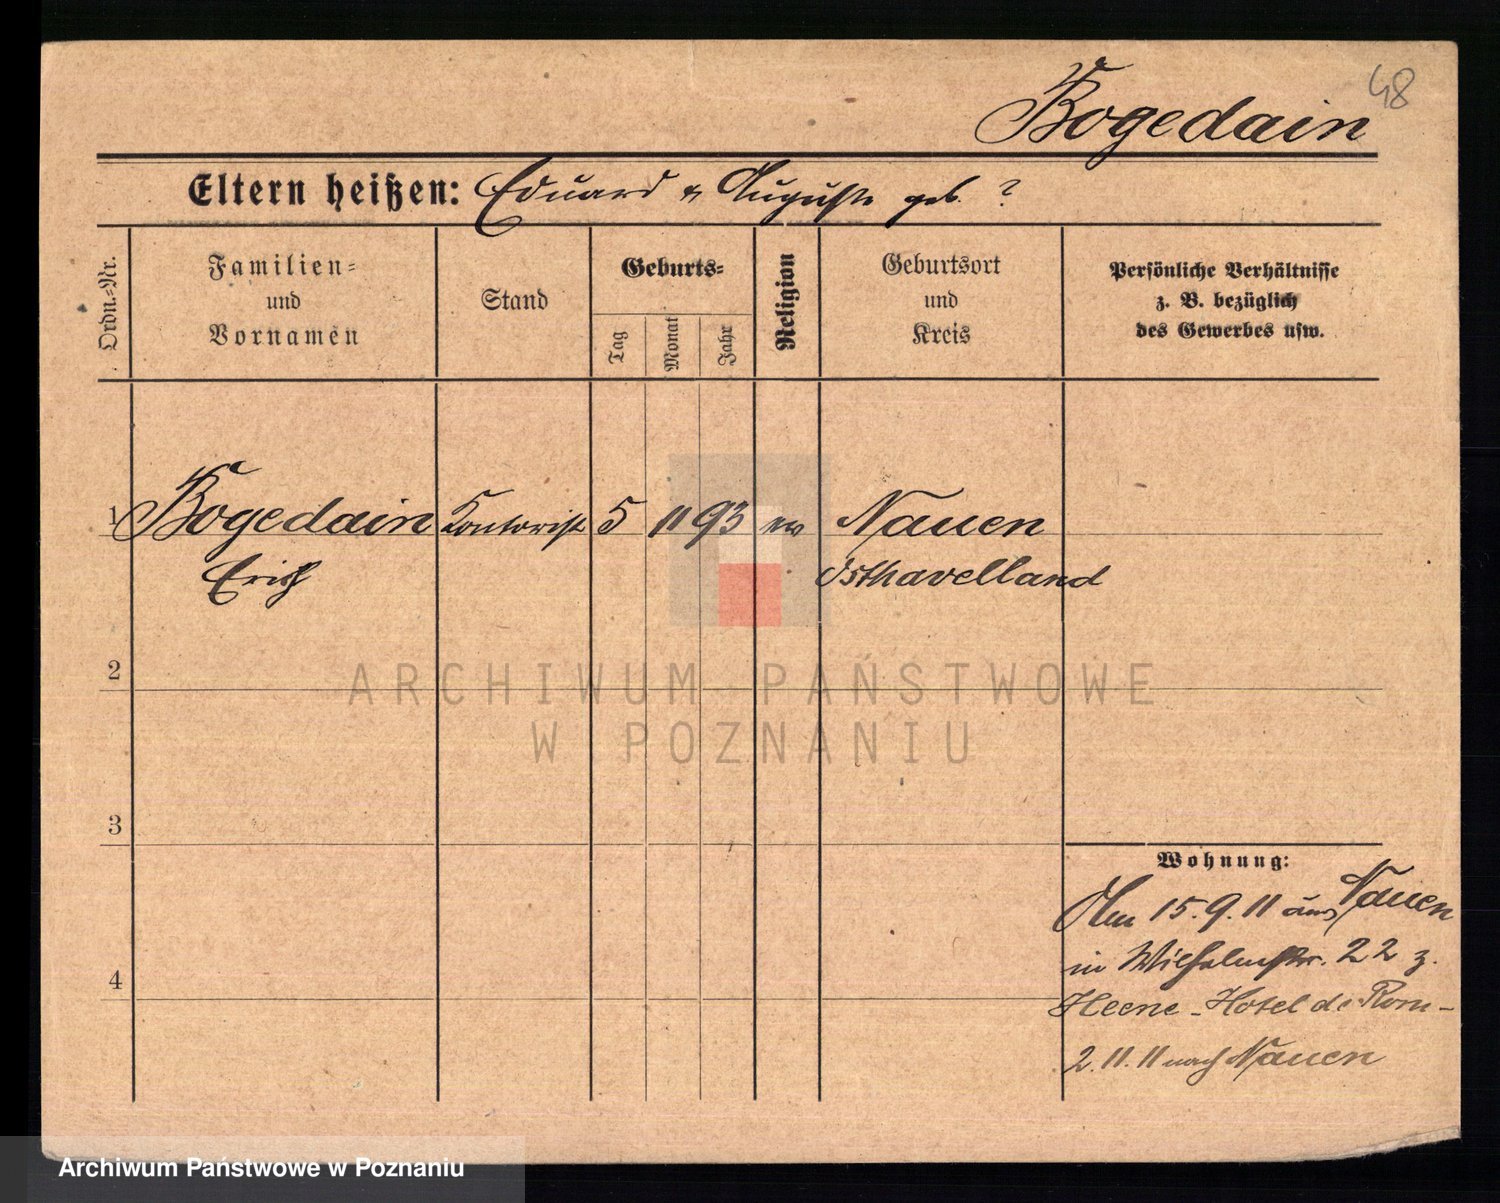 48
Bogedain
Eltern heißen: Eduard u Auguste geb. ?
Ordn.-Nr.
Familien-
und
Vornamen
Stand
Geburts-
Tag
Monat
Jahr
Religion
Geburtsort
und
Kreis
Persönliche Verhältnisse
z. B. bezüglich
des Gewerbes usw.
1 Bogedain Kontorist 5 11 93 ev Nauen
Erich Osthavelland
2
ARCHIWUM PAŃSTWOWE
W POZNANIU
3
Wohnung:
Am 15.9.11 aus Nauen
in Wilhelmstr. 22 z.
4
Heene - Hotel de Rom -
2.11.11 nach Nauen
Archiwum Państwowe w Poznaniu